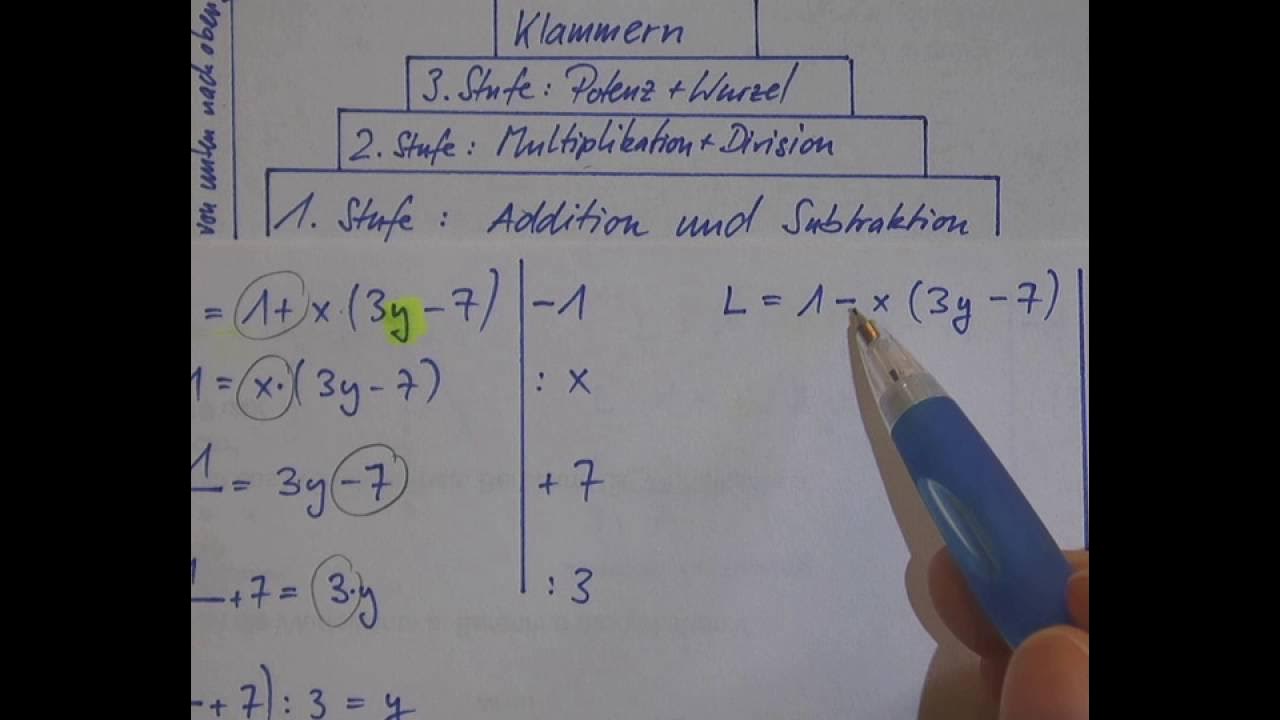 von unten nach oben
Klammern
3. Stufe: Potenz + Wurzel
2. Stufe: Multiplikation + Division
1. Stufe: Addition und Subtraktion
= 1 + x · (3y - 7) | - 1
1 = x · (3y - 7) | : x
1 = 3y - 7 | + 7
+ 7 = 3 · y | : 3
+ 7) : 3 = y
L = 1 - x (3y - 7) |